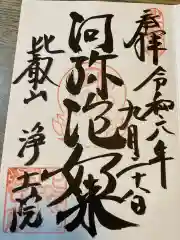 奉拝 令和六年
九月
阿弥陀如来
比叡山
浄土院